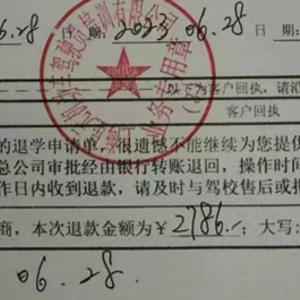 06.28 日期: 2023 06.28 日期:
驾驶员培训有限公司
业务专用章
以下为客户回执，请沿
客户回执
的退学申请单，很遗憾不能继续为您提供
总公司审批经由银行转账退回，操作时间
作日内收到退款，请及时与驾校售后或
商，本次退款金额为￥2786.-；大写:
06.28.